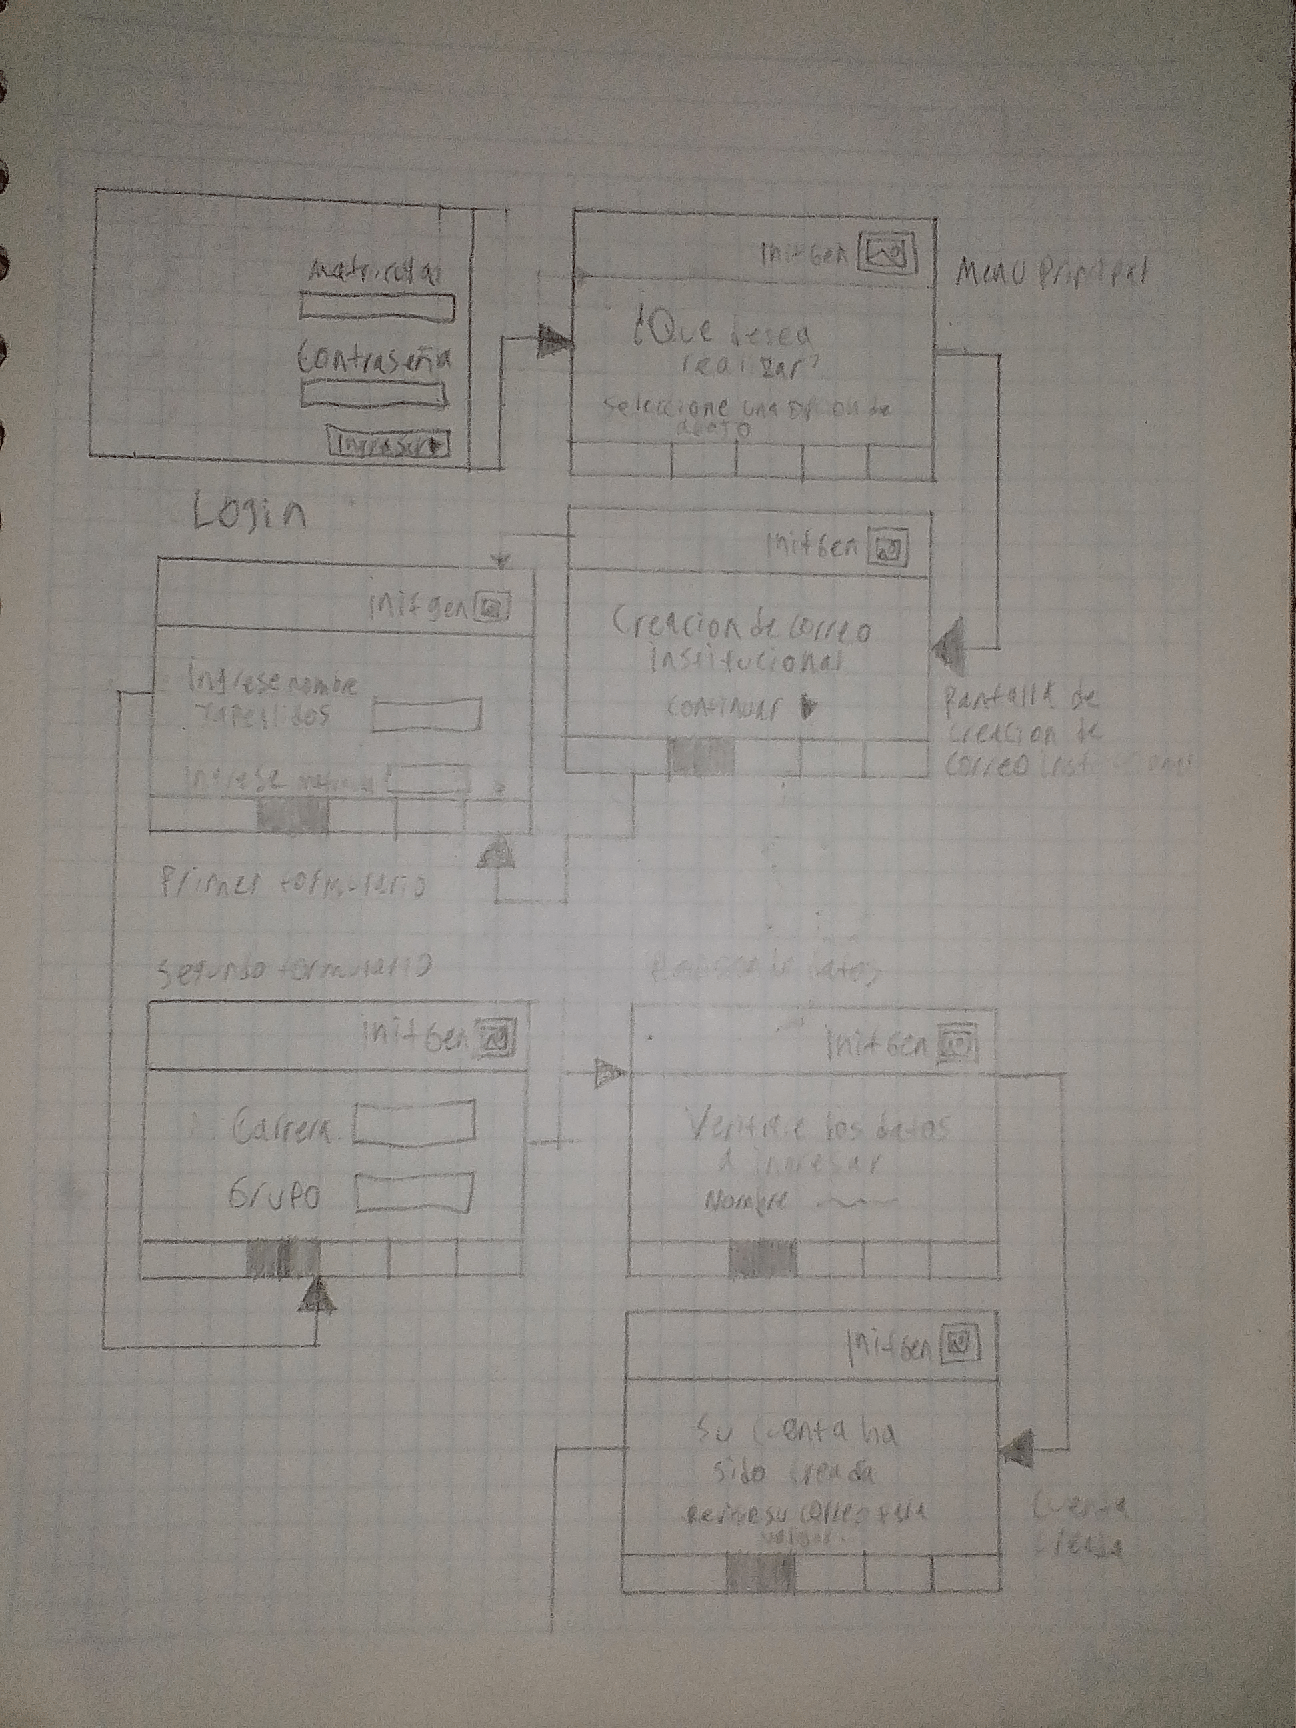 Matricula
Contraseña
Ingresar
Login
InitGen
¿Que desea
realizar?
Seleccione una opcion de
abajo
Menu Principal
InitGen
Creacion de correo
institucional
continuar
Pantalla de
creacion de
correo
Initgen
Ingrese nombre
y apellidos
Ingrese
Primer formulario
Segundo formulario
InitGen
Carrera
Grupo
datos
InitGen
Verifique los datos
a ingresar
Nombre
InitGen
Su cuenta ha
sido creada
su correo para
Cuenta
creada